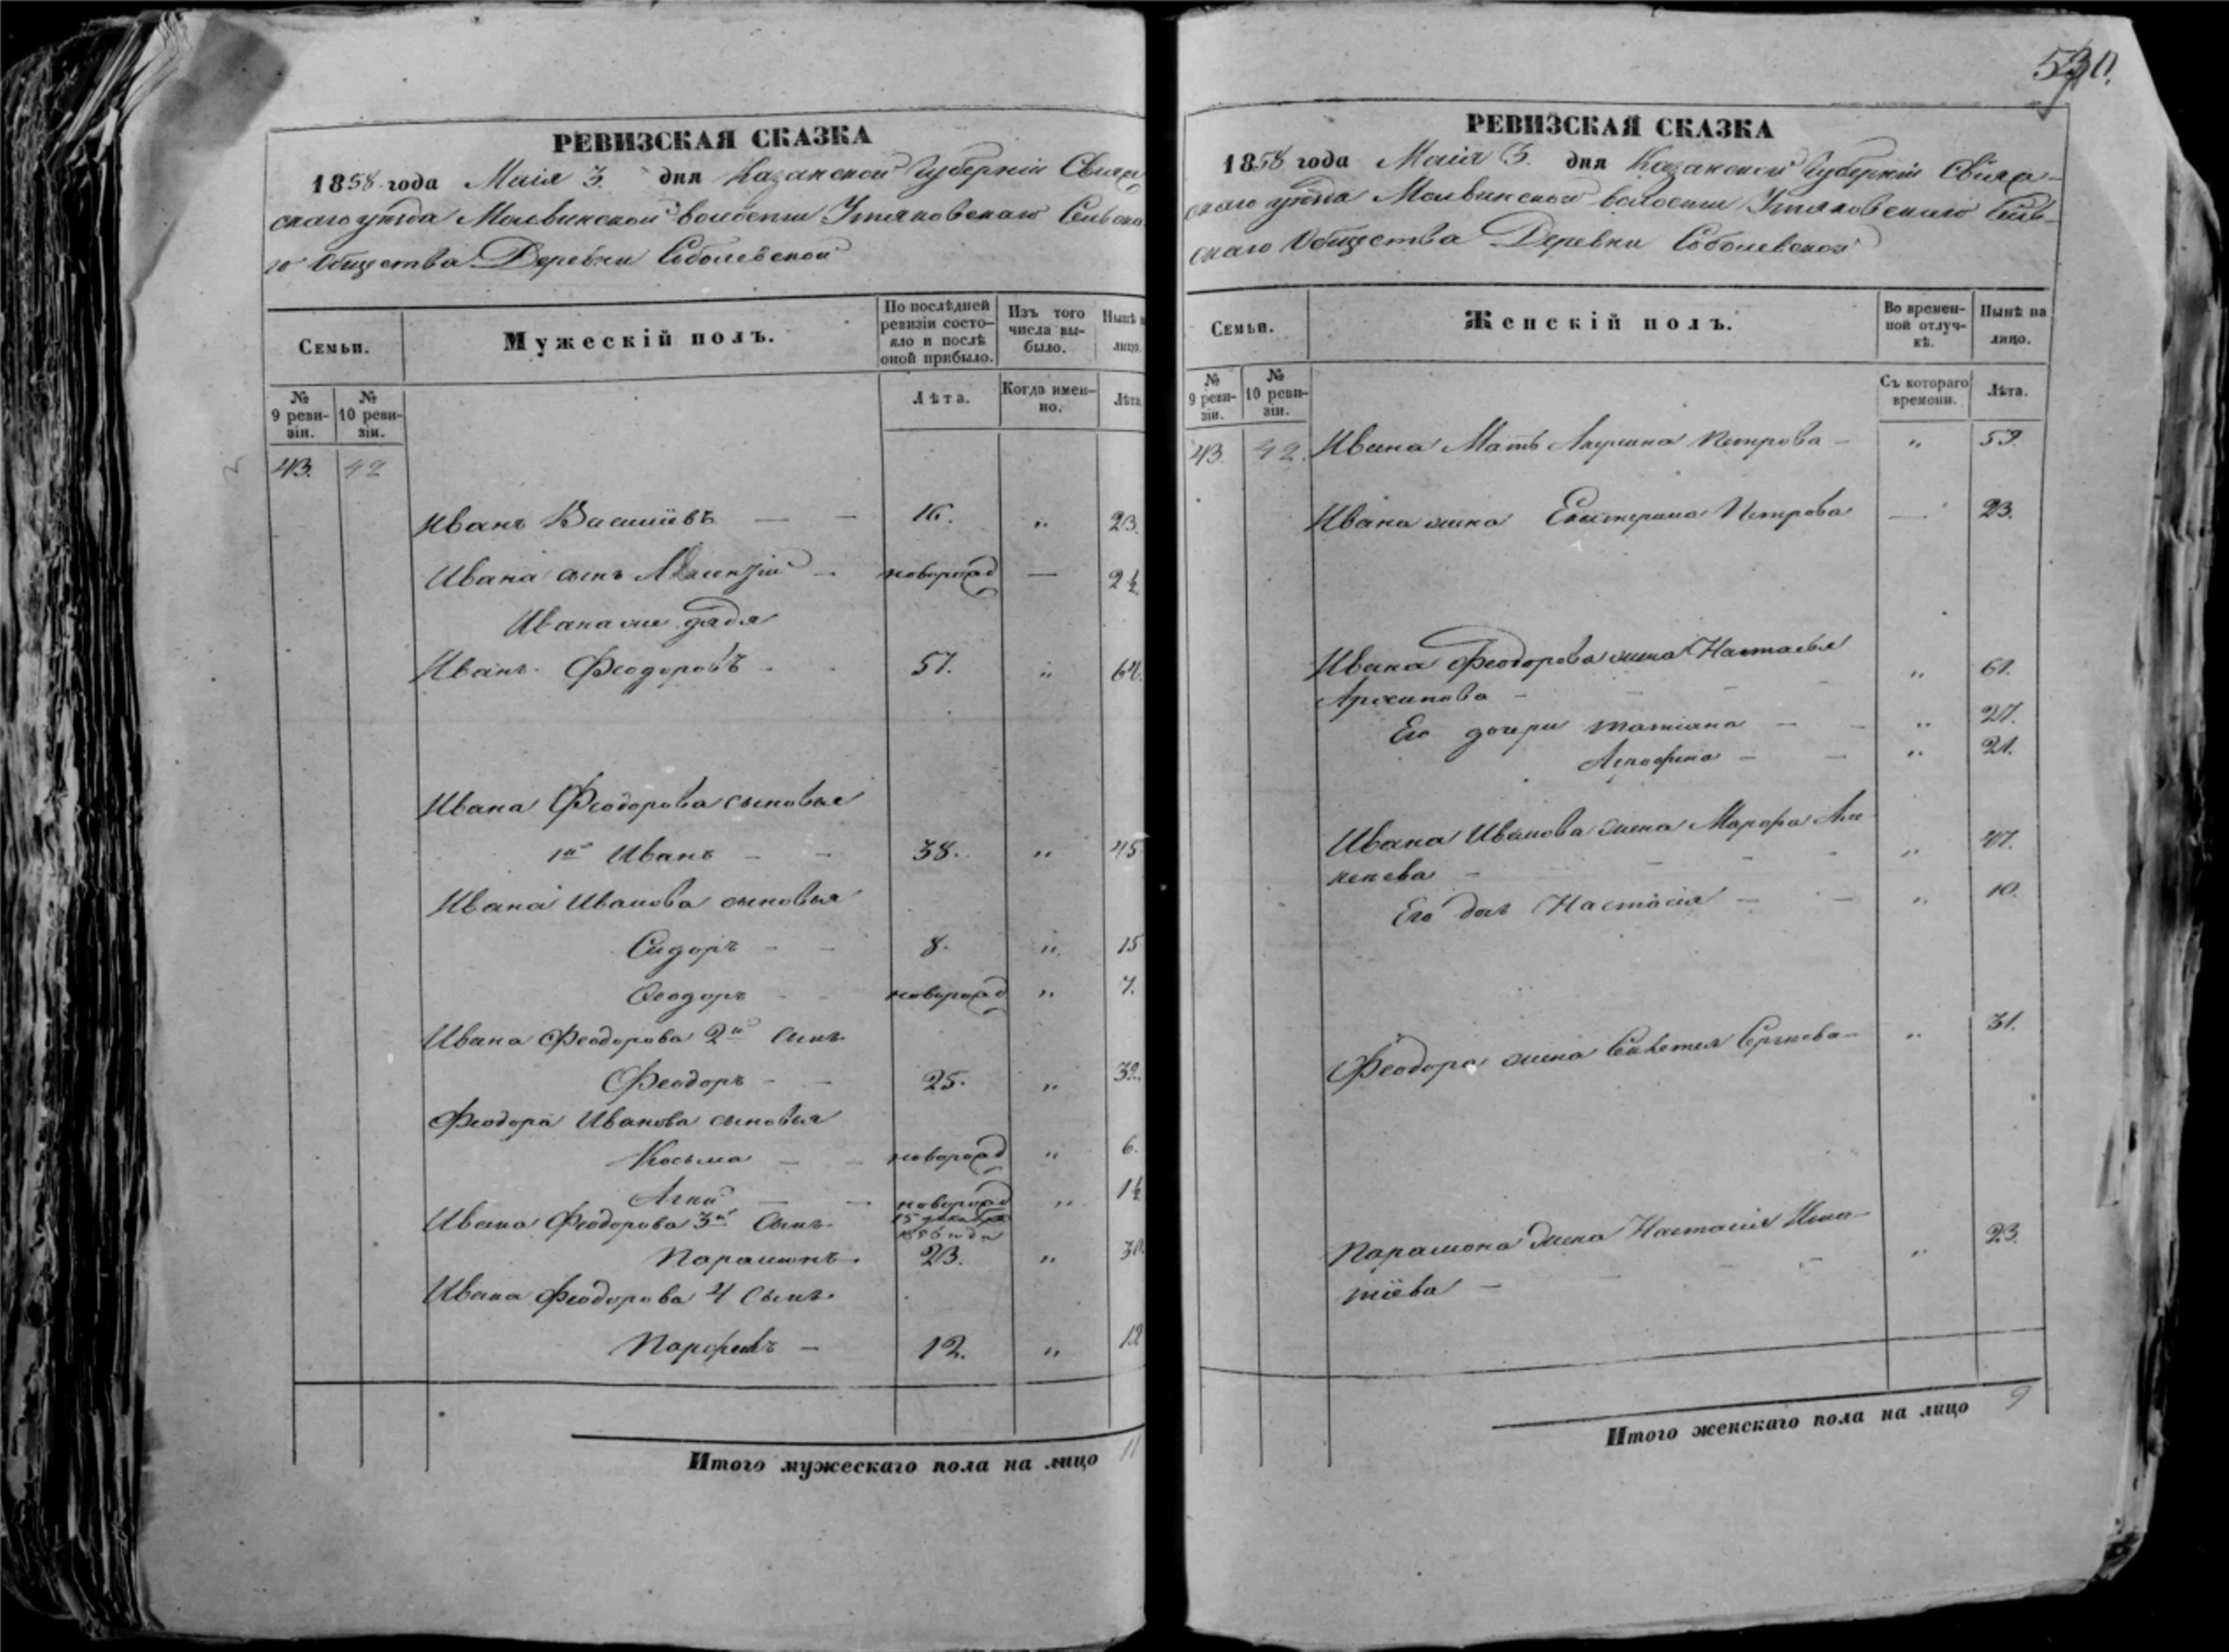 РЕВИЗСКАЯ СКАЗКА
1858 года Маія 3. дня Казанской Губерніи Свіяж
скаго уѣзда Молвинской волости Утяковскаго Сельска
го Общества Деревни Соболевской
Семьи.
Мужескій полъ.
По послѣдней
ревизіи состо-
яло и послѣ
оной прибыло.
Изъ того
числа вы-
было.
Нынѣ н
лицо.
№
9 реви-
зіи.
№
10 реви-
зіи.
Лѣта.
Когда имен-
но.
Лѣта
43. 42
Иванъ Васильевъ — — 16. „ 23.
Ивана сынъ — новорожд — 2½
Ивана же дядя
Иванъ Феодоровъ - - 57. „ 64.
Ивана Феодорова сыновья
1й Иванъ - - 38. „ 45
Ивана Иванова сыновья
Сидоръ - - 8. „ 15
Феодоръ - - новорожд „ 7.
Ивана Феодорова 2й сынъ
Феодоръ - - 25. „ 32.
Феодора Иванова сыновья
Косьма — — новорожд „ 6.
— — новорожд „ 1½
15 декабря
1856 года
Ивана Феодорова 3й Сынъ
Парамонъ 23. „ 30.
Ивана Феодорова 4 Сынъ
— 12. „ 12
Итого мужескаго пола на лицо 11
530.
РЕВИЗСКАЯ СКАЗКА
1858 года Маія 3. дня Казанской Губерніи Свіяж-
скаго уѣзда Молвинской волости Утяковскаго Сель-
скаго Общества Деревни Соболевской
Семьи.
Женскій полъ.
Во времен-
ной отлуч-
кѣ.
Нынѣ на
лицо.
№
9 реви-
зіи.
№
10 реви-
зіи.
Съ котораго
времени.
Лѣта.
43. 42. Ивана Мать Акулина Петрова — „ 59.
Ивана жена Екатерина Петрова — 23.
Ивана Феодорова жена Настасья
Архипова - - - - „ 61.
Его дочери Татіана — — „ 27.
Агрофена — — „ 21.
Ивана Иванова жена Марфа Але
ксеева - - - - „ 47.
Его дочь Настасія — — „ 10.
Феодора жена Сергеева — „ 31.
Парамона жена Настасія Игна-
тіева — - - „ 23.
Итого женскаго пола на лицо 9